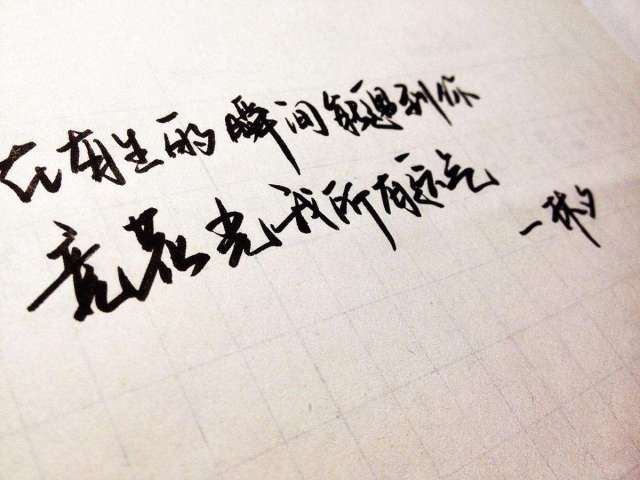 在有生的瞬间能遇到你
竟花光我所有运气
—林夕